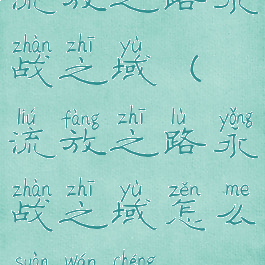 流放之路永
zhàn zhī yù
战之域（
liú fàng zhī lù yǒng
流放之路永
zhàn zhī yù zěn me
战之域怎么
suàn wán chéng